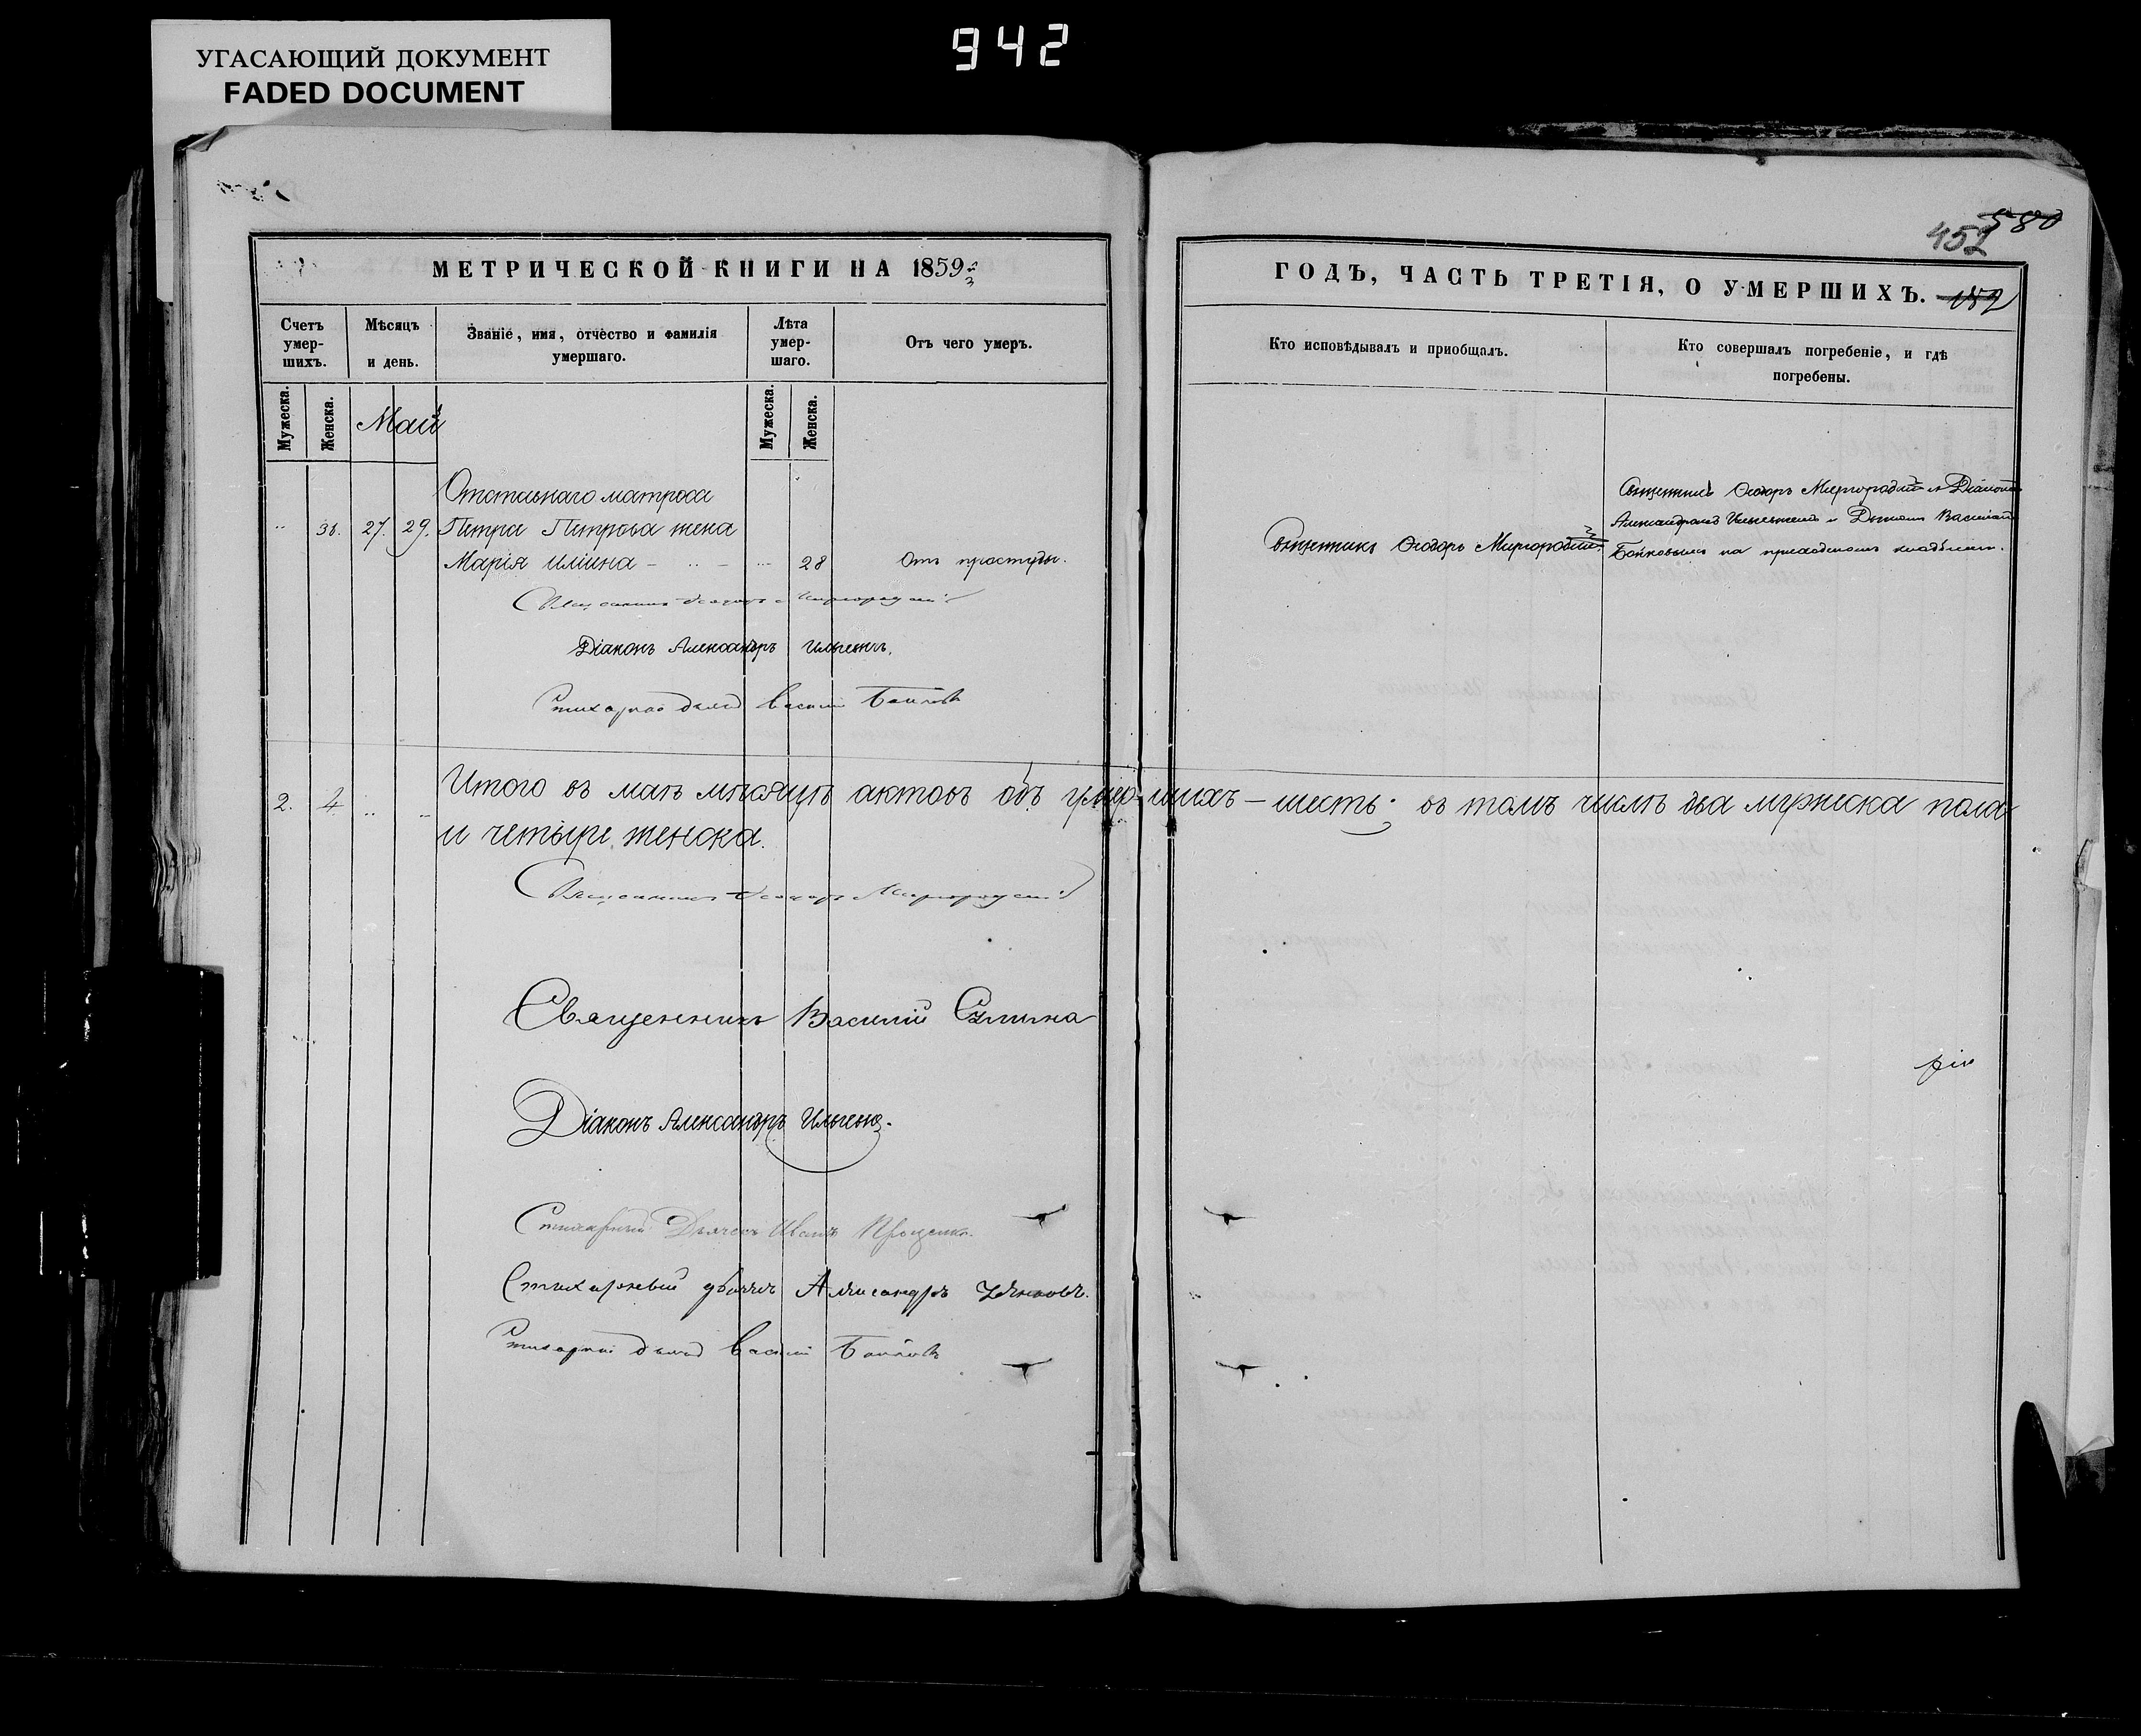 УГАСАЮЩИЙ ДОКУМЕНТ
FADED DOCUMENT
942
580
452
МЕТРИЧЕСКОЙ КНИГИ НА 1859
ГОДЪ, ЧАСТЬ ТРЕТІЯ, О УМЕРШИХЪ. 152
Счетъ умер-шихъ.
Мѣсяцъ и день.
Званіе, имя, отчество и фамилія умершаго.
Лѣта умер-шаго.
Отъ чего умеръ.
Кто исповѣдывалъ и приобщалъ.
Кто совершалъ погребеніе, и гдѣ погребены.
Мужеска. Женска. Май Мужеска. Женска.
Отставнаго матроса
38. 27. 29. Петра Петрова жена
Марія Иліина 28 Отъ простуды.
Священникъ Ѳеодоръ Миргородскій
Священникъ Ѳеодоръ Миргородскій и Діаконъ
Александромъ Ильинымъ и Василій
Бойковымъ на приходскомъ кладбищѣ.
Священникъ Ѳеодоръ Миргородскій
Діаконъ Александръ
Стихарный дьячокъ Василій Бойковъ
2. 4. Итого въ маѣ мѣсяцѣ актовъ объ умершихъ – шесть; въ томъ числѣ два мужеска пола
и четыре женска.
Священникъ Ѳеодоръ Миргородскій
Священникъ Василій
Діаконъ Александръ
Стихарный Дьячекъ Иванъ Проценко
Стихарный дьячекъ Александръ
Стихарный дьячокъ Василій Бойковъ